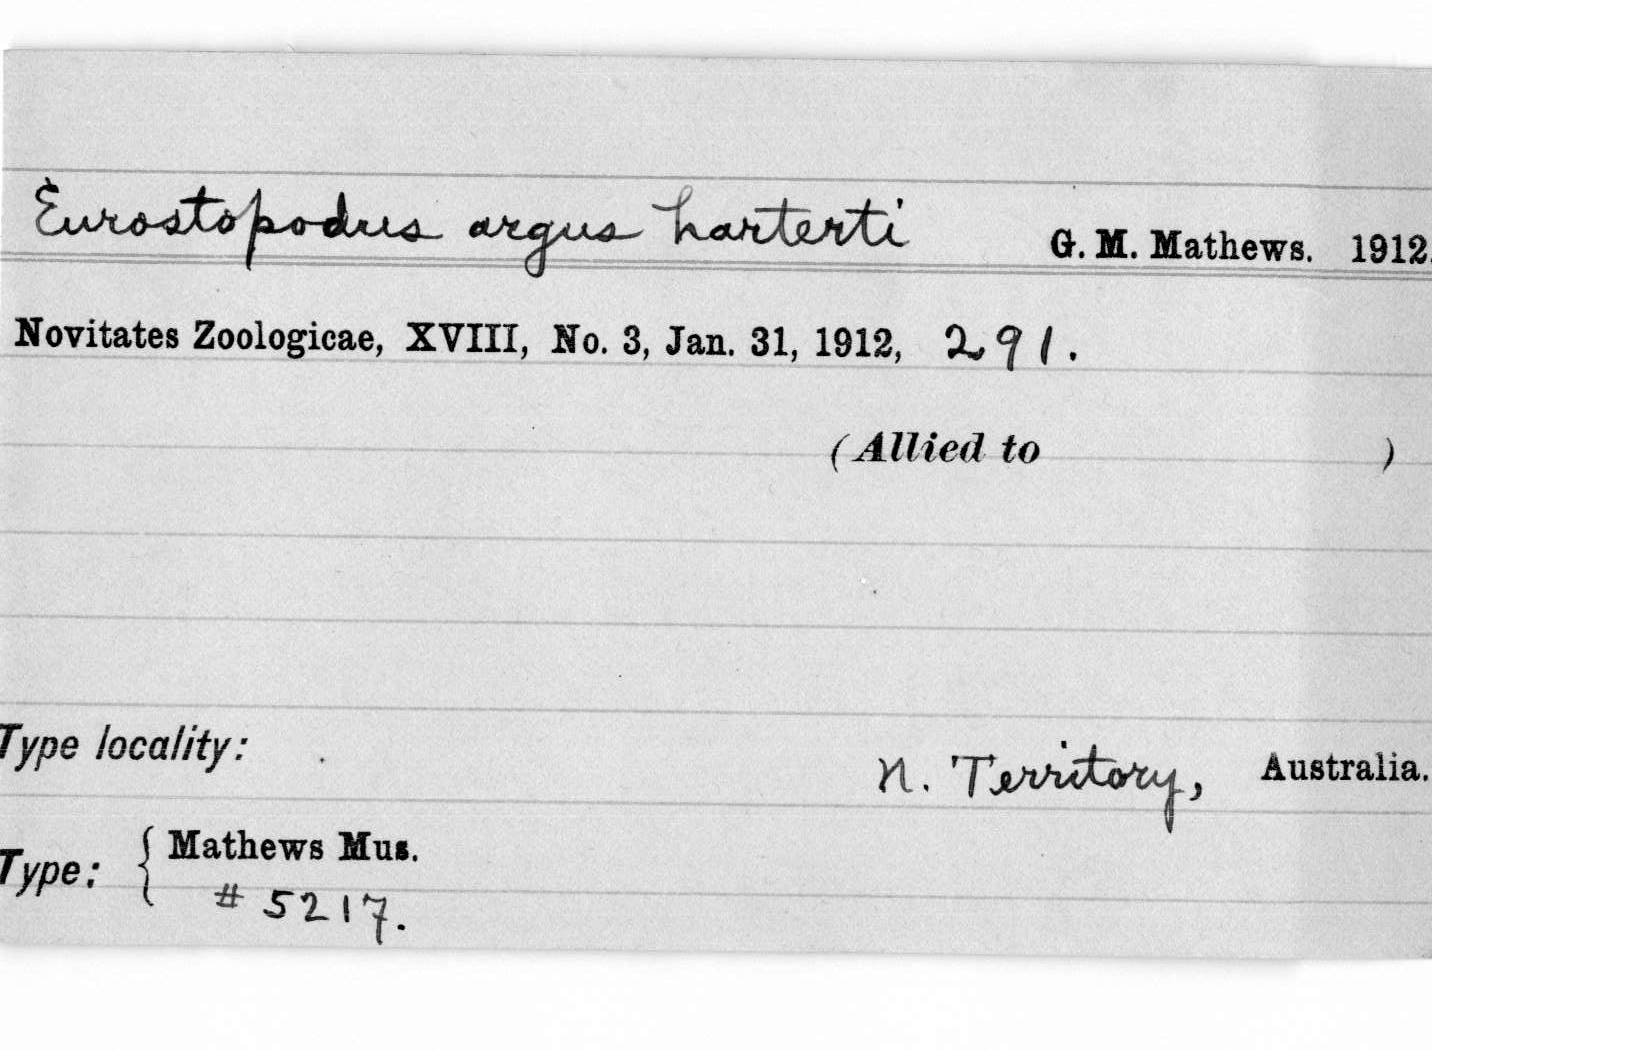 Eurostopodus argus harterti G. M. Mathews. 1912.
Novitates Zoologicae, XVIII, No. 3, Jan. 31, 1912, 291.
(Allied to )
Type locality: N. Territory, Australia.
Type: { Mathews Mus.
# 5217.